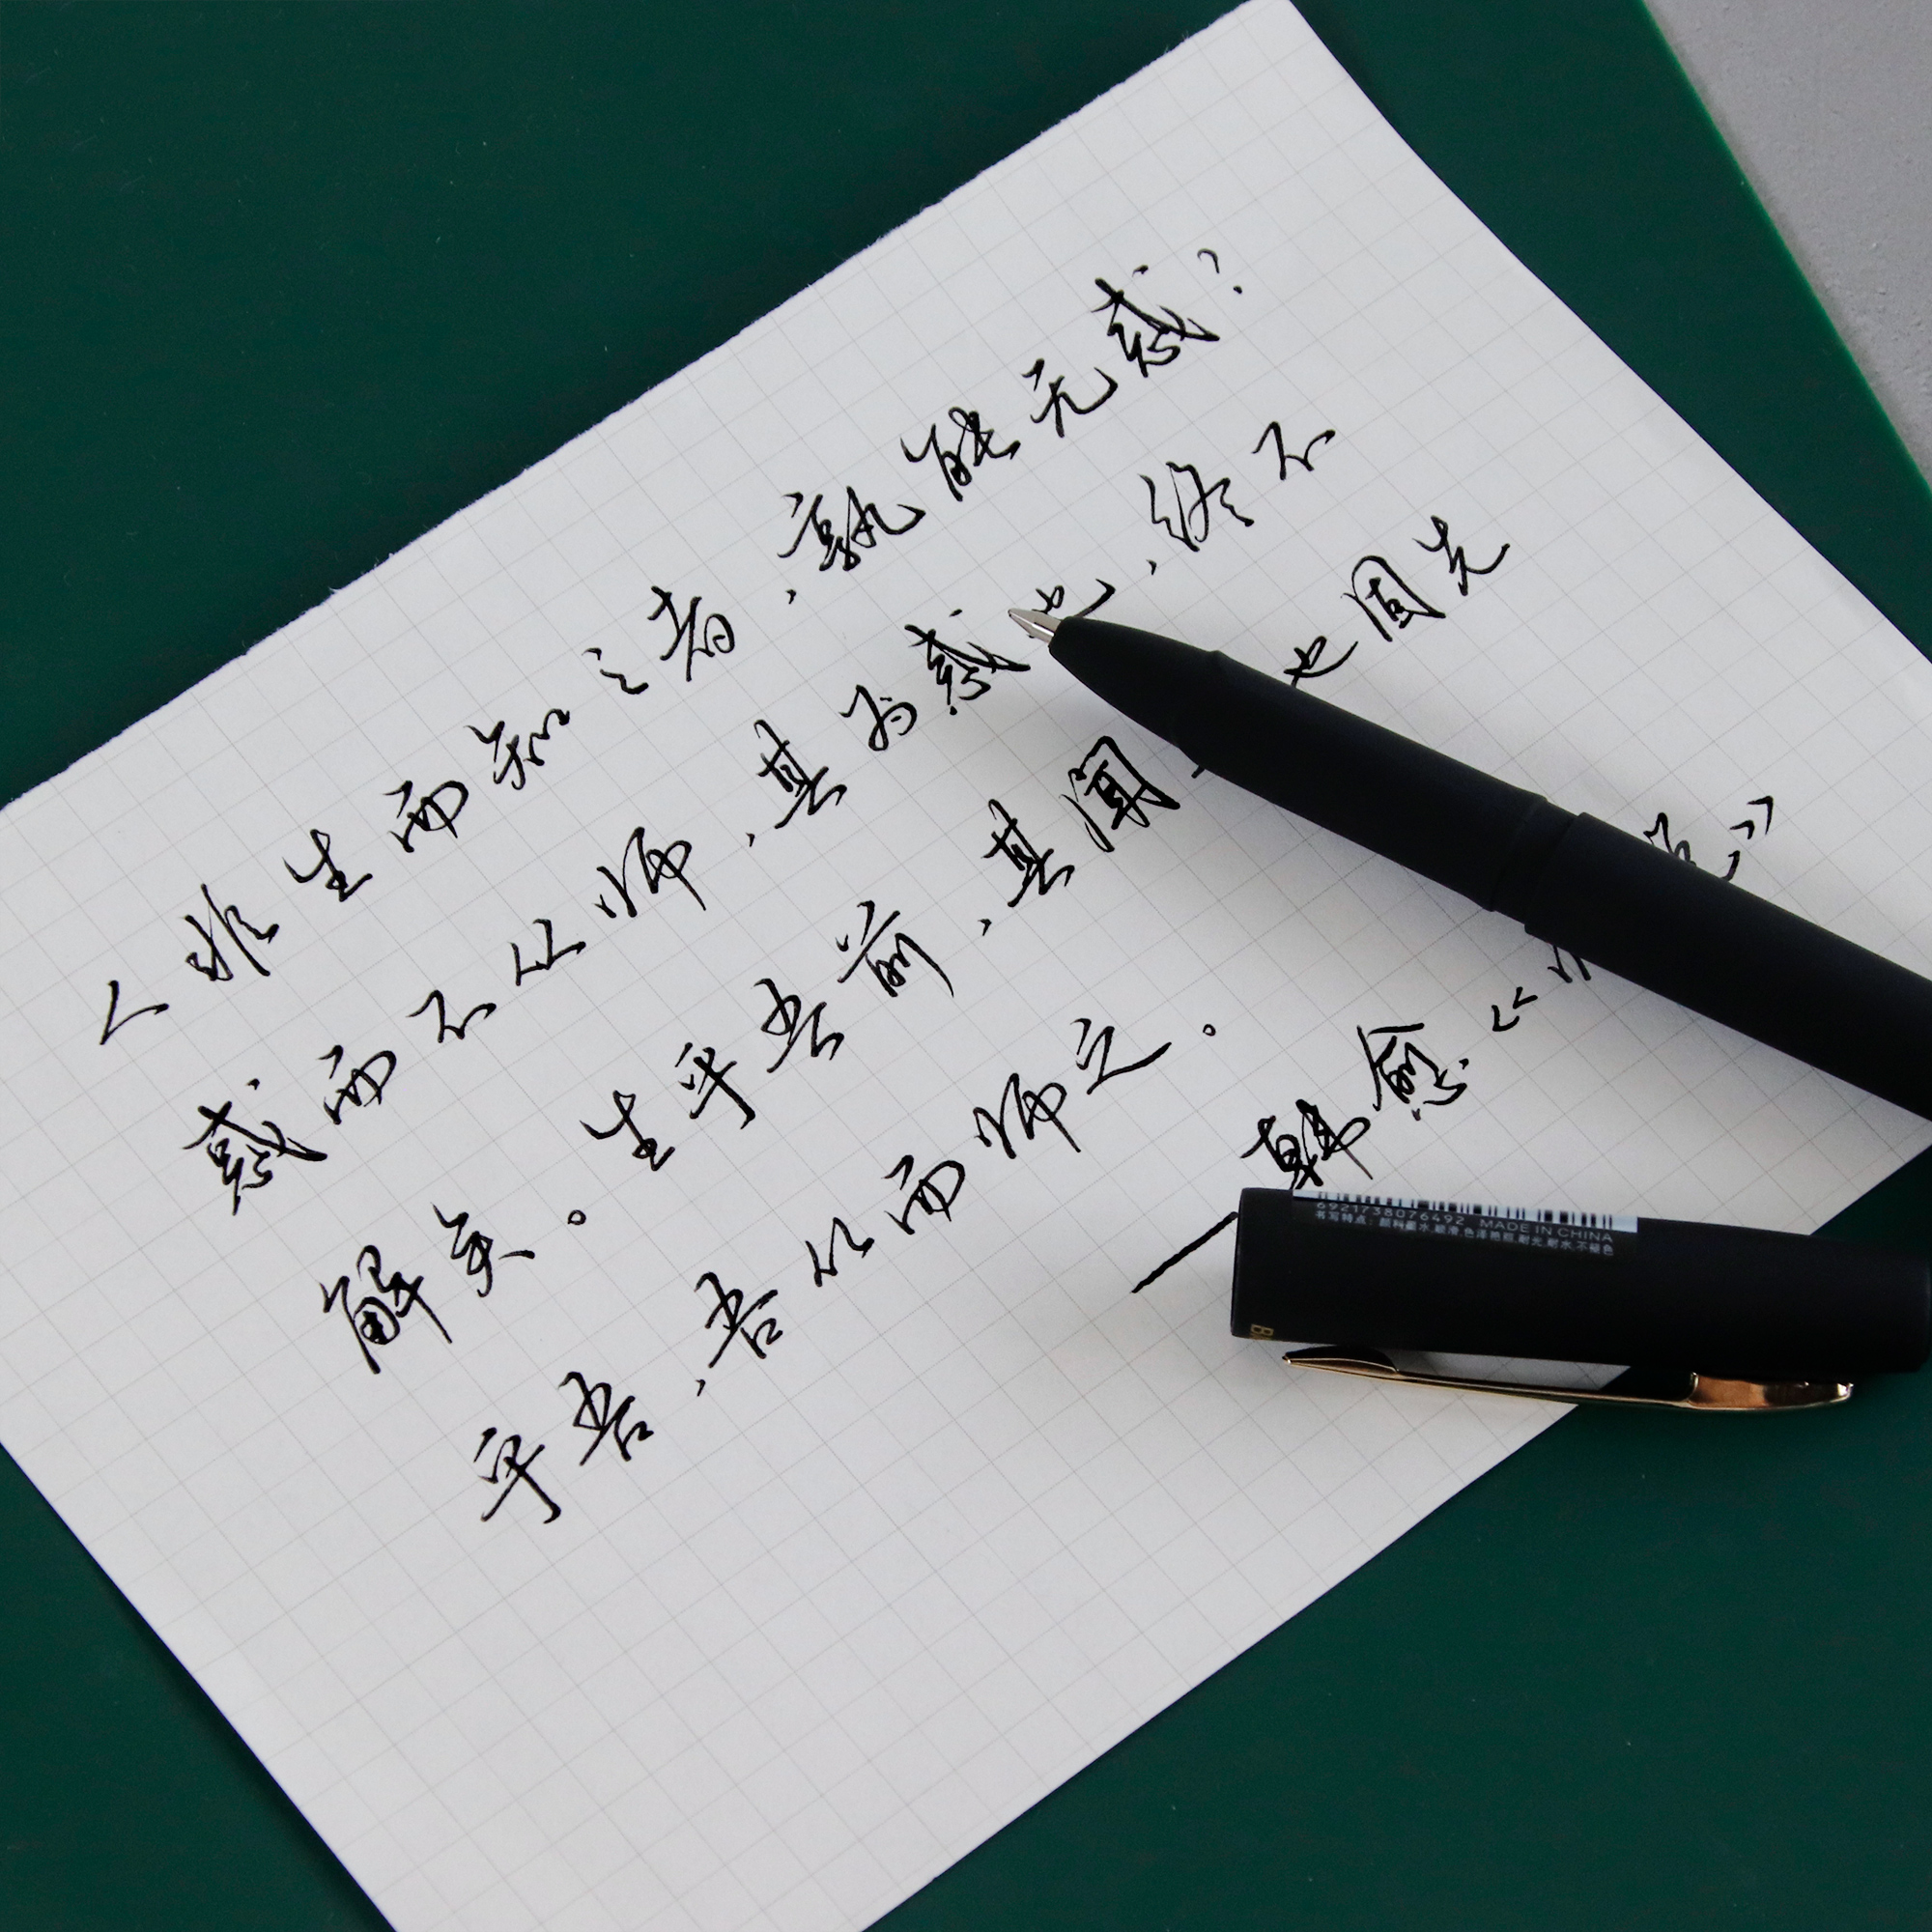 人非生而知之者,孰能无惑?
惑而不从师,其为惑也,终不
解矣。生乎吾前,其闻 也固先
乎吾,吾从而师之。
—韩愈《 》
6921738076492 MADE IN CHINA
书写特点:颜料墨水,顺滑,色泽艳丽,耐光,耐水,不褪色